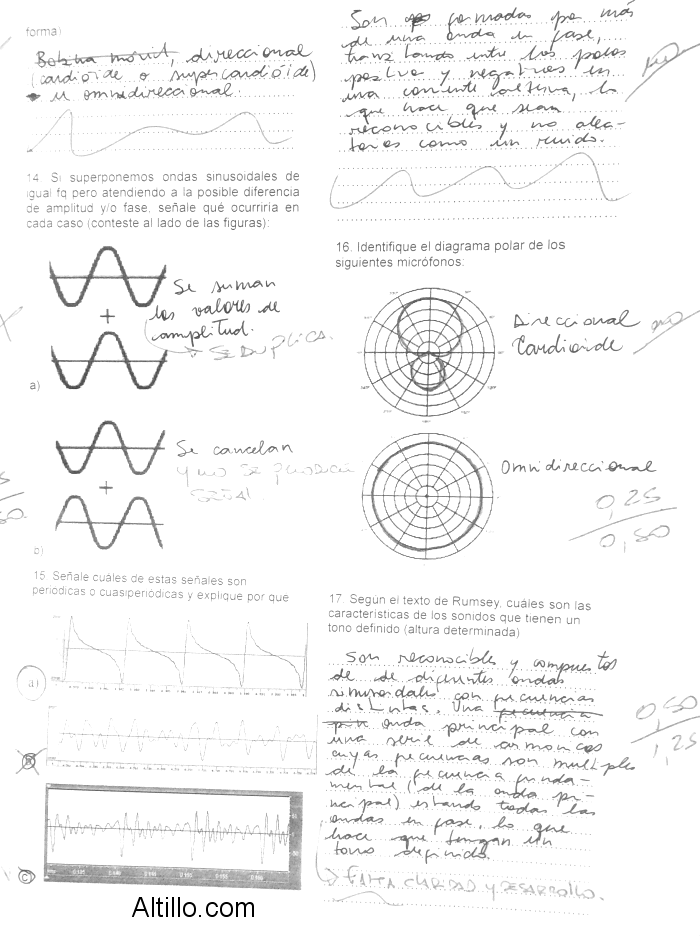 forma)
Bobina móvil, direccional
(cardioide o supercardioide)
u omnidireccional.
14. Si superponemos ondas sinusoidales de
igual fq pero atendiendo a la posible diferencia
de amplitud y/o fase, señale qué ocurriría en
cada caso (conteste al lado de las figuras):
Se suman
los valores de
amplitud.
SE DUPLICA.
a)
Se cancelan
Y NO SE PRODUCE
SEÑAL.
b)
15. Señale cuáles de estas señales son
periódicas o cuasiperiódicas y explique por que
a)
B)
C)
Son formadas por más
de una onda en fase,
entre los polos
positivo y negativos en
una corriente alterna, lo
que hace que sean
reconocibles y no alea-
torias como un ruido.
16. Identifique el diagrama polar de los
siguientes micrófonos:
Direccional
Cardioide
Omnidireccional
0,25
0,50
17. Según el texto de Rumsey, cuáles son las
características de los sonidos que tienen un
tono definido (altura determinada)
Son reconocibles y compuestos
de de diferentes ondas
sinusoidales con frecuencias
distintas. Una frecuencia
onda principal con
una serie de armonicos
cuyas frecuencias son multiples
de la frecuencia funda-
mental (de la onda prin-
cipal) estando todas las
ondas en fase, lo que
hace que tengan un
tono definido.
0,50
1,25
FALTA CLARIDAD Y DESARROLLO.
Altillo.com